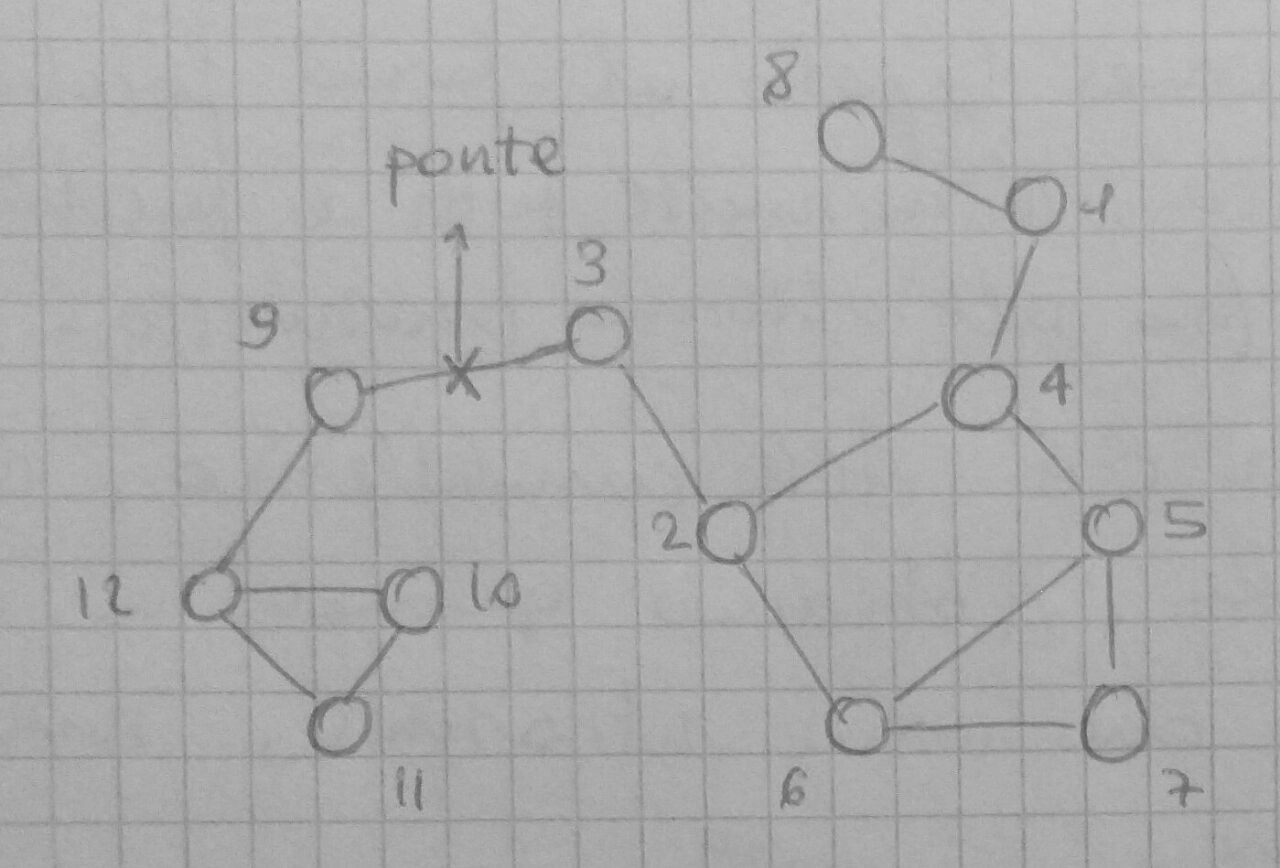 8
ponte
1
3
9
4
2
5
12
10
6
11
7